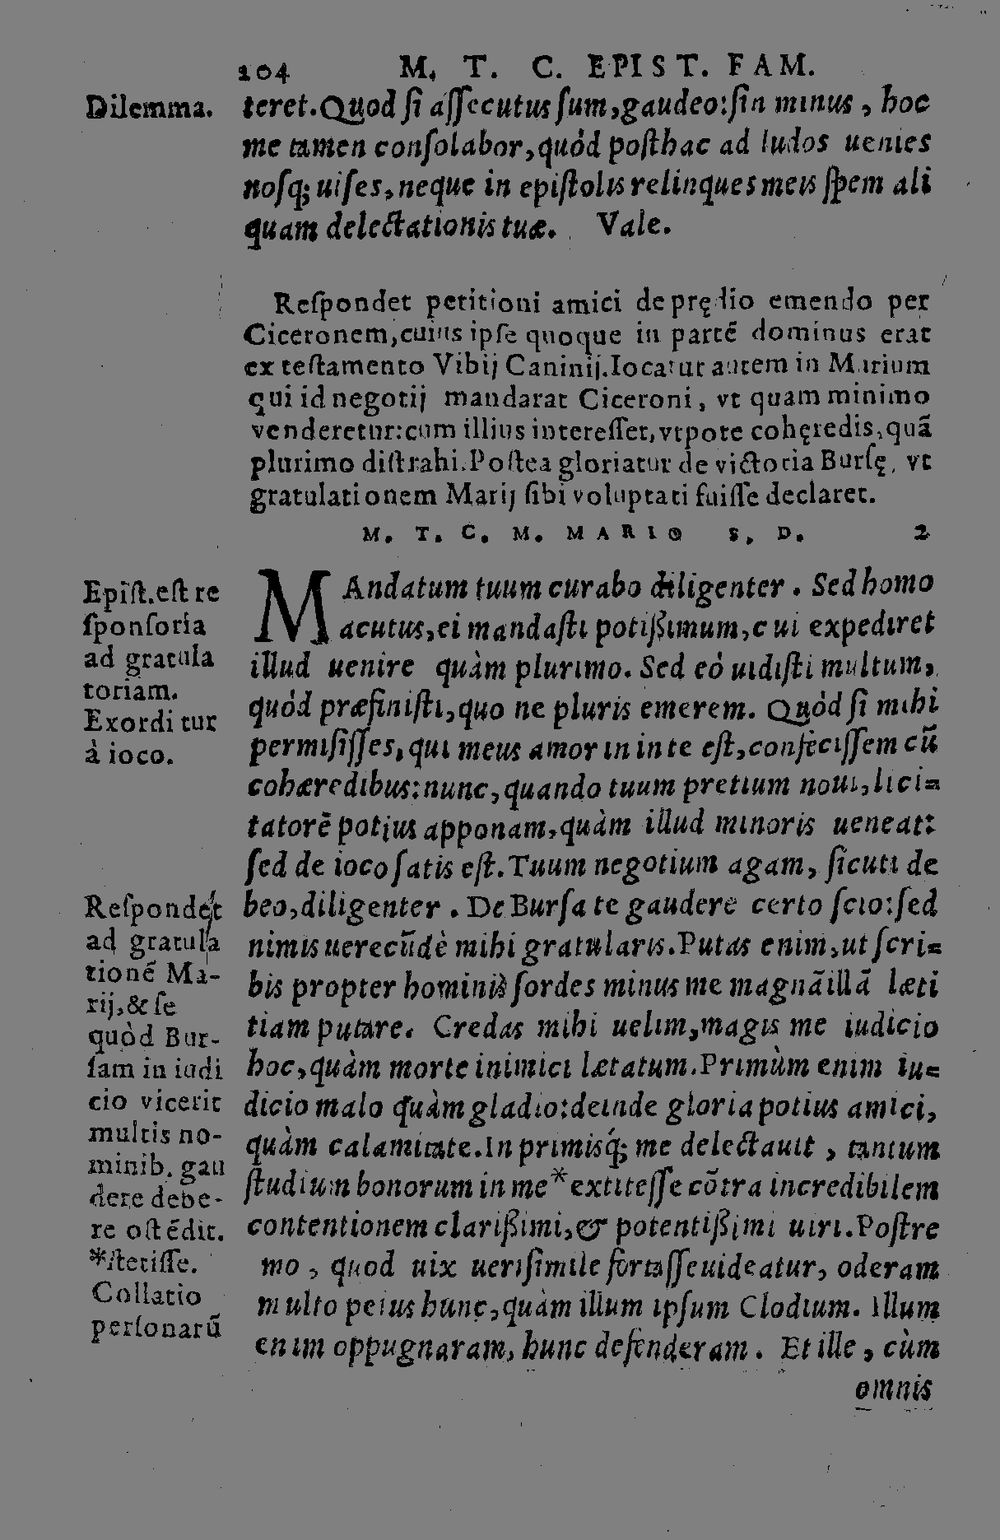 204 M. T. C. EPIST. FAM.
Dilemma.
teret. Quod si assecutus sum, gaudeo: sin minus, hoc
me tamen consolabor, quòd posthac ad ludos uenies
nosq; uises, neque in epistolis relinques meis spem ali
quam delectationis tuæ. Vale.
Respondet petitioni amici de prędio emendo per
Ciceronem, cuius ipse quoque in partē dominus erat
ex testamento Vibij Caninij. Iocatur autem in Marium
qui id negotij mandarat Ciceroni, vt quam minimo
venderetur: cum illius interesset, vtpote cohęredis, quā
plurimo distrahi. Postea gloriatur de victoria Bursę, vt
gratulationem Marij sibi voluptati fuisse declaret.
M. T. C. M. MARIO S. D. 2
Epist. est re
sponsoria
ad gratula
toriam.
Exorditur
à ioco.
MAndatum tuum curabo diligenter. Sed homo
acutus, ei mandasti potißimum, cui expediret
illud uenire quàm plurimo. Sed eó uidisti multum,
quòd præfinisti, quo ne pluris emerem. Quòd si mihi
permisisses, qui meus amor in in te est, confecissem cū
cohæredibus: nunc, quando tuum pretium noui, lici=
tatorē potius apponam, quàm illud minoris ueneat:
sed de ioco satis est. Tuum negotium agam, sicuti de
beo, diligenter. De Bursa te gaudere certo scio: sed
nimis uerecūdè mihi gratularis. Putas enim, ut scri=
bis propter hominis sordes minus me magnā illā læti
tiam putare. Credas mihi uelim, magis me iudicio
hoc, quàm morte inimici lætatum. Primùm enim iu=
dicio malo quàm gladio: deinde gloria potius amici,
quàm calamitate. In primisq́; me delectauit, tantum
studium bonorum in me * extitesse cōtra incredibilem
contentionem clarißimi, & potentißimi uiri. Postre
mo, quod uix uerisimile fortasse uideatur, oderam
multo peius hunc, quàm illum ipsum Clodium. Illum
enim oppugnaram, hunc defenderam. Et ille, cùm
omnis
Respondet
ad gratula
tionē Ma-
rij, & se
quòd Bur-
sam in iudi
cio vicerit
multis no-
minib. gau
dere debe-
re ostēdit.
*stetisse.
Collatio
personarū